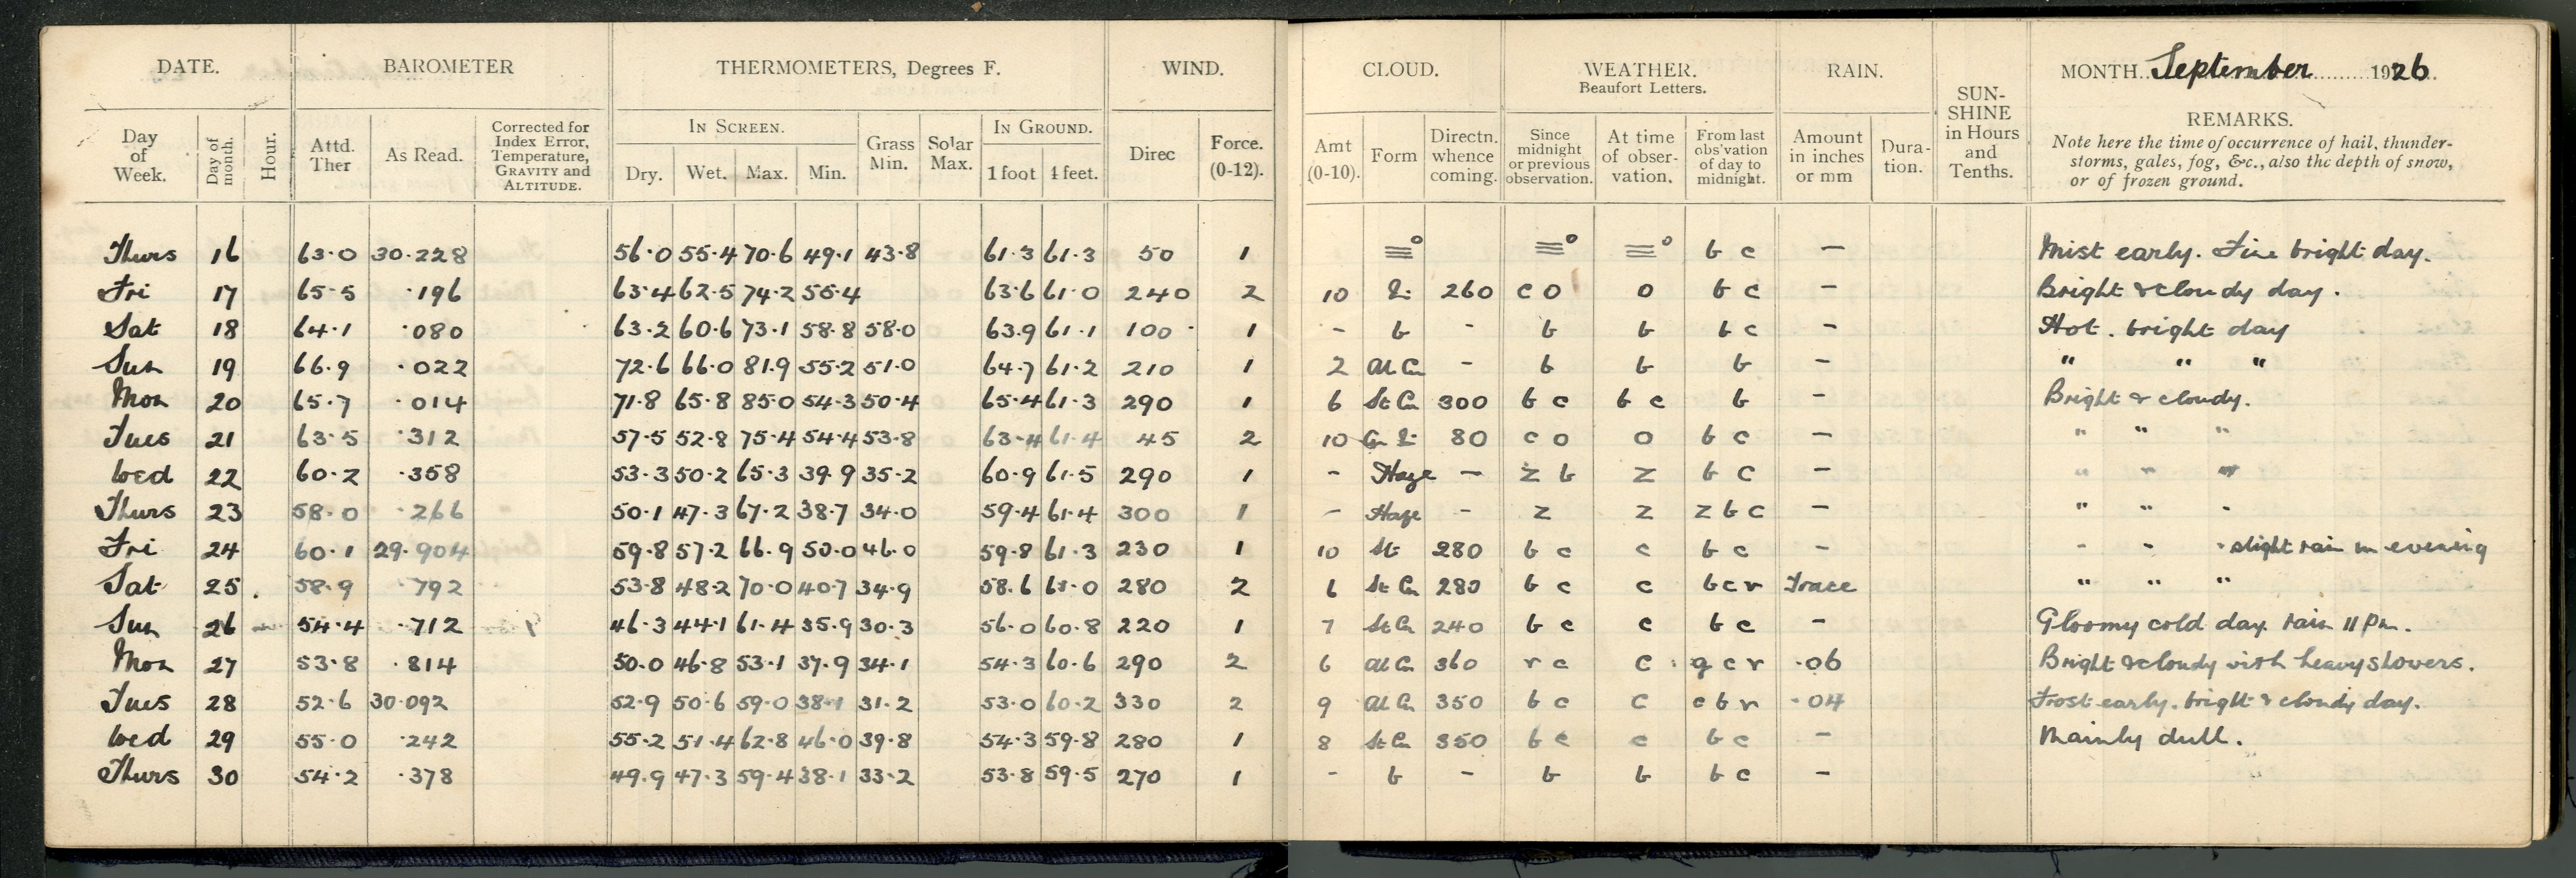 DATE. BAROMETER THERMOMETERS, Degrees F. WIND. CLOUD. WEATHER. Beaufort Letters. RAIN. SUN-SHINE in Hours and Tenths. MONTH September 1926
REMARKS.
Note here the time of occurrence of hail, thunder-
storms, gales, fog, &c., also the depth of snow,
or of frozen ground.
IN SCREEN. IN GROUND.
Day of Week. Day of month. Hour. Attd. Ther As Read. Corrected for Index Error, Temperature, GRAVITY and ALTITUDE. Dry. Wet. Max. Min. Grass Min. Solar Max. 1 foot 4 feet. Direc Force. (0-12). Amt (0-10). Form Directn. whence coming. Since midnight or previous observation. At time of obser-vation. From last obs'vation of day to midnight. Amount in inches or mm Dura-tion.
Thurs 16 63.0 30.228 56.0 55.4 70.6 49.1 43.8 61.3 61.3 50 1 ≡° ≡° ≡° b c – Mist early. Fine bright day.
Fri 17 65.5 .196 63.4 62.5 74.2 55.4 63.6 61.0 240 2 10 260 c o o b c – Bright & cloudy day.
Sat 18 64.1 .080 63.2 60.6 73.1 58.8 58.0 63.9 61.1 100 1 – b – b b b c – Hot. bright day
Sun 19 66.9 .022 72.6 66.0 81.9 55.2 51.0 64.7 61.2 210 1 2 Al Cu – b b b – " " "
Mon 20 65.7 .014 71.8 65.8 85.0 54.3 50.4 65.4 61.3 290 1 6 St Cu 300 b c b c b – Bright & cloudy.
Tues 21 63.5 .312 57.5 52.8 75.4 54.4 53.8 63.4 61.4 45 2 10 80 c o o b c – " " "
Wed 22 60.2 .358 53.3 50.2 65.3 39.9 35.2 60.9 61.5 290 1 – Haze – z b z b c – " " "
Thurs 23 58.0 .266 50.1 47.3 67.2 38.7 34.0 59.4 61.4 300 1 – Haze – z z z b c – " " "
Fri 24 60.1 29.904 59.8 57.2 66.9 50.0 46.0 59.8 61.3 230 1 10 St 280 b c c b c – " " " slight rain in evening
Sat 25 58.9 .792 53.8 48.2 70.0 40.7 34.9 58.6 61.0 280 2 6 St Cu 280 b c c b c r Trace " " "
Sun 26 54.4 .712 46.3 44.1 61.4 35.9 30.3 56.0 60.8 220 1 7 St Cu 240 b c c b c – Gloomy cold day. rain 11 pm.
Mon 27 53.8 .814 50.0 46.8 53.1 37.9 34.1 54.3 60.6 290 2 6 Al Cu 360 r c c q c r .06 Bright & cloudy with heavy showers.
Tues 28 52.6 30.092 52.9 50.6 59.0 38.1 31.2 53.0 60.2 330 2 9 Al Cu 350 b c c c b r .04 Frost early. bright & cloudy day.
Wed 29 55.0 .242 55.2 51.4 62.8 46.0 39.8 54.3 59.8 280 1 8 St Cu 350 b c c b c – Mainly dull.
Thurs 30 54.2 .378 49.9 47.3 59.4 38.1 33.2 53.8 59.5 270 1 – b – b b b c –